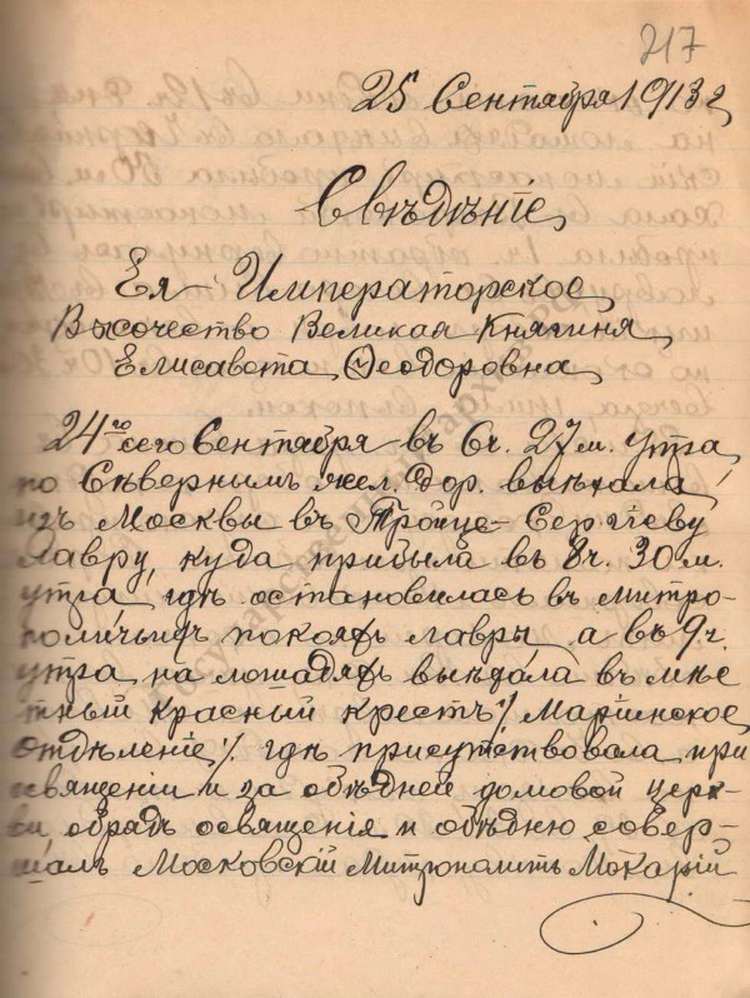 217
25 Сентября 1913 г.
Свѣдѣніе
Ея Императорское
Высочество Великая Княгиня
Елисавета Ѳеодоровна
24го сего Сентября въ 6 ч. 27 м. утра
по Сѣвернымъ жел. дор. выѣхала
изъ Москвы въ Троице-Сергіеву
Лавру, куда прибыла въ 8 ч. 30 м.
утра, гдѣ остановилась въ митро-
поличьихъ покояхъ лавры, а въ 9 ч.
утра на лошадяхъ выѣхала въ мѣс
тный Красный Крестъ % Маріинское
отдѣленіе % гдѣ присутствовала при
освященіи и за обѣдней домовой цер-
ви, обрядъ освященія и обѣдню совер-
шалъ Московскій Митрополитъ Макарій